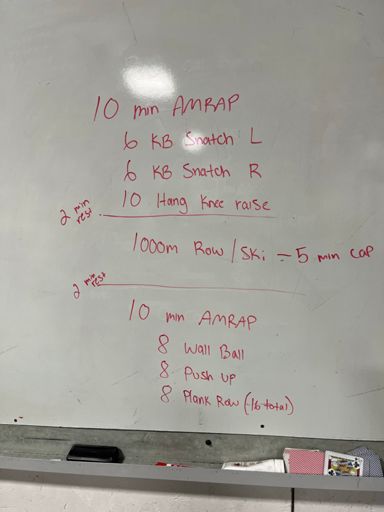 10 min AMRAP
6 KB Snatch L
6 KB Snatch R
10 Hang Knee raise
2 min rest
1000m Row / Ski - 5 min cap
2 min rest
10 min AMRAP
8 Wall Ball
8 Push up
8 Plank Row (16 total)